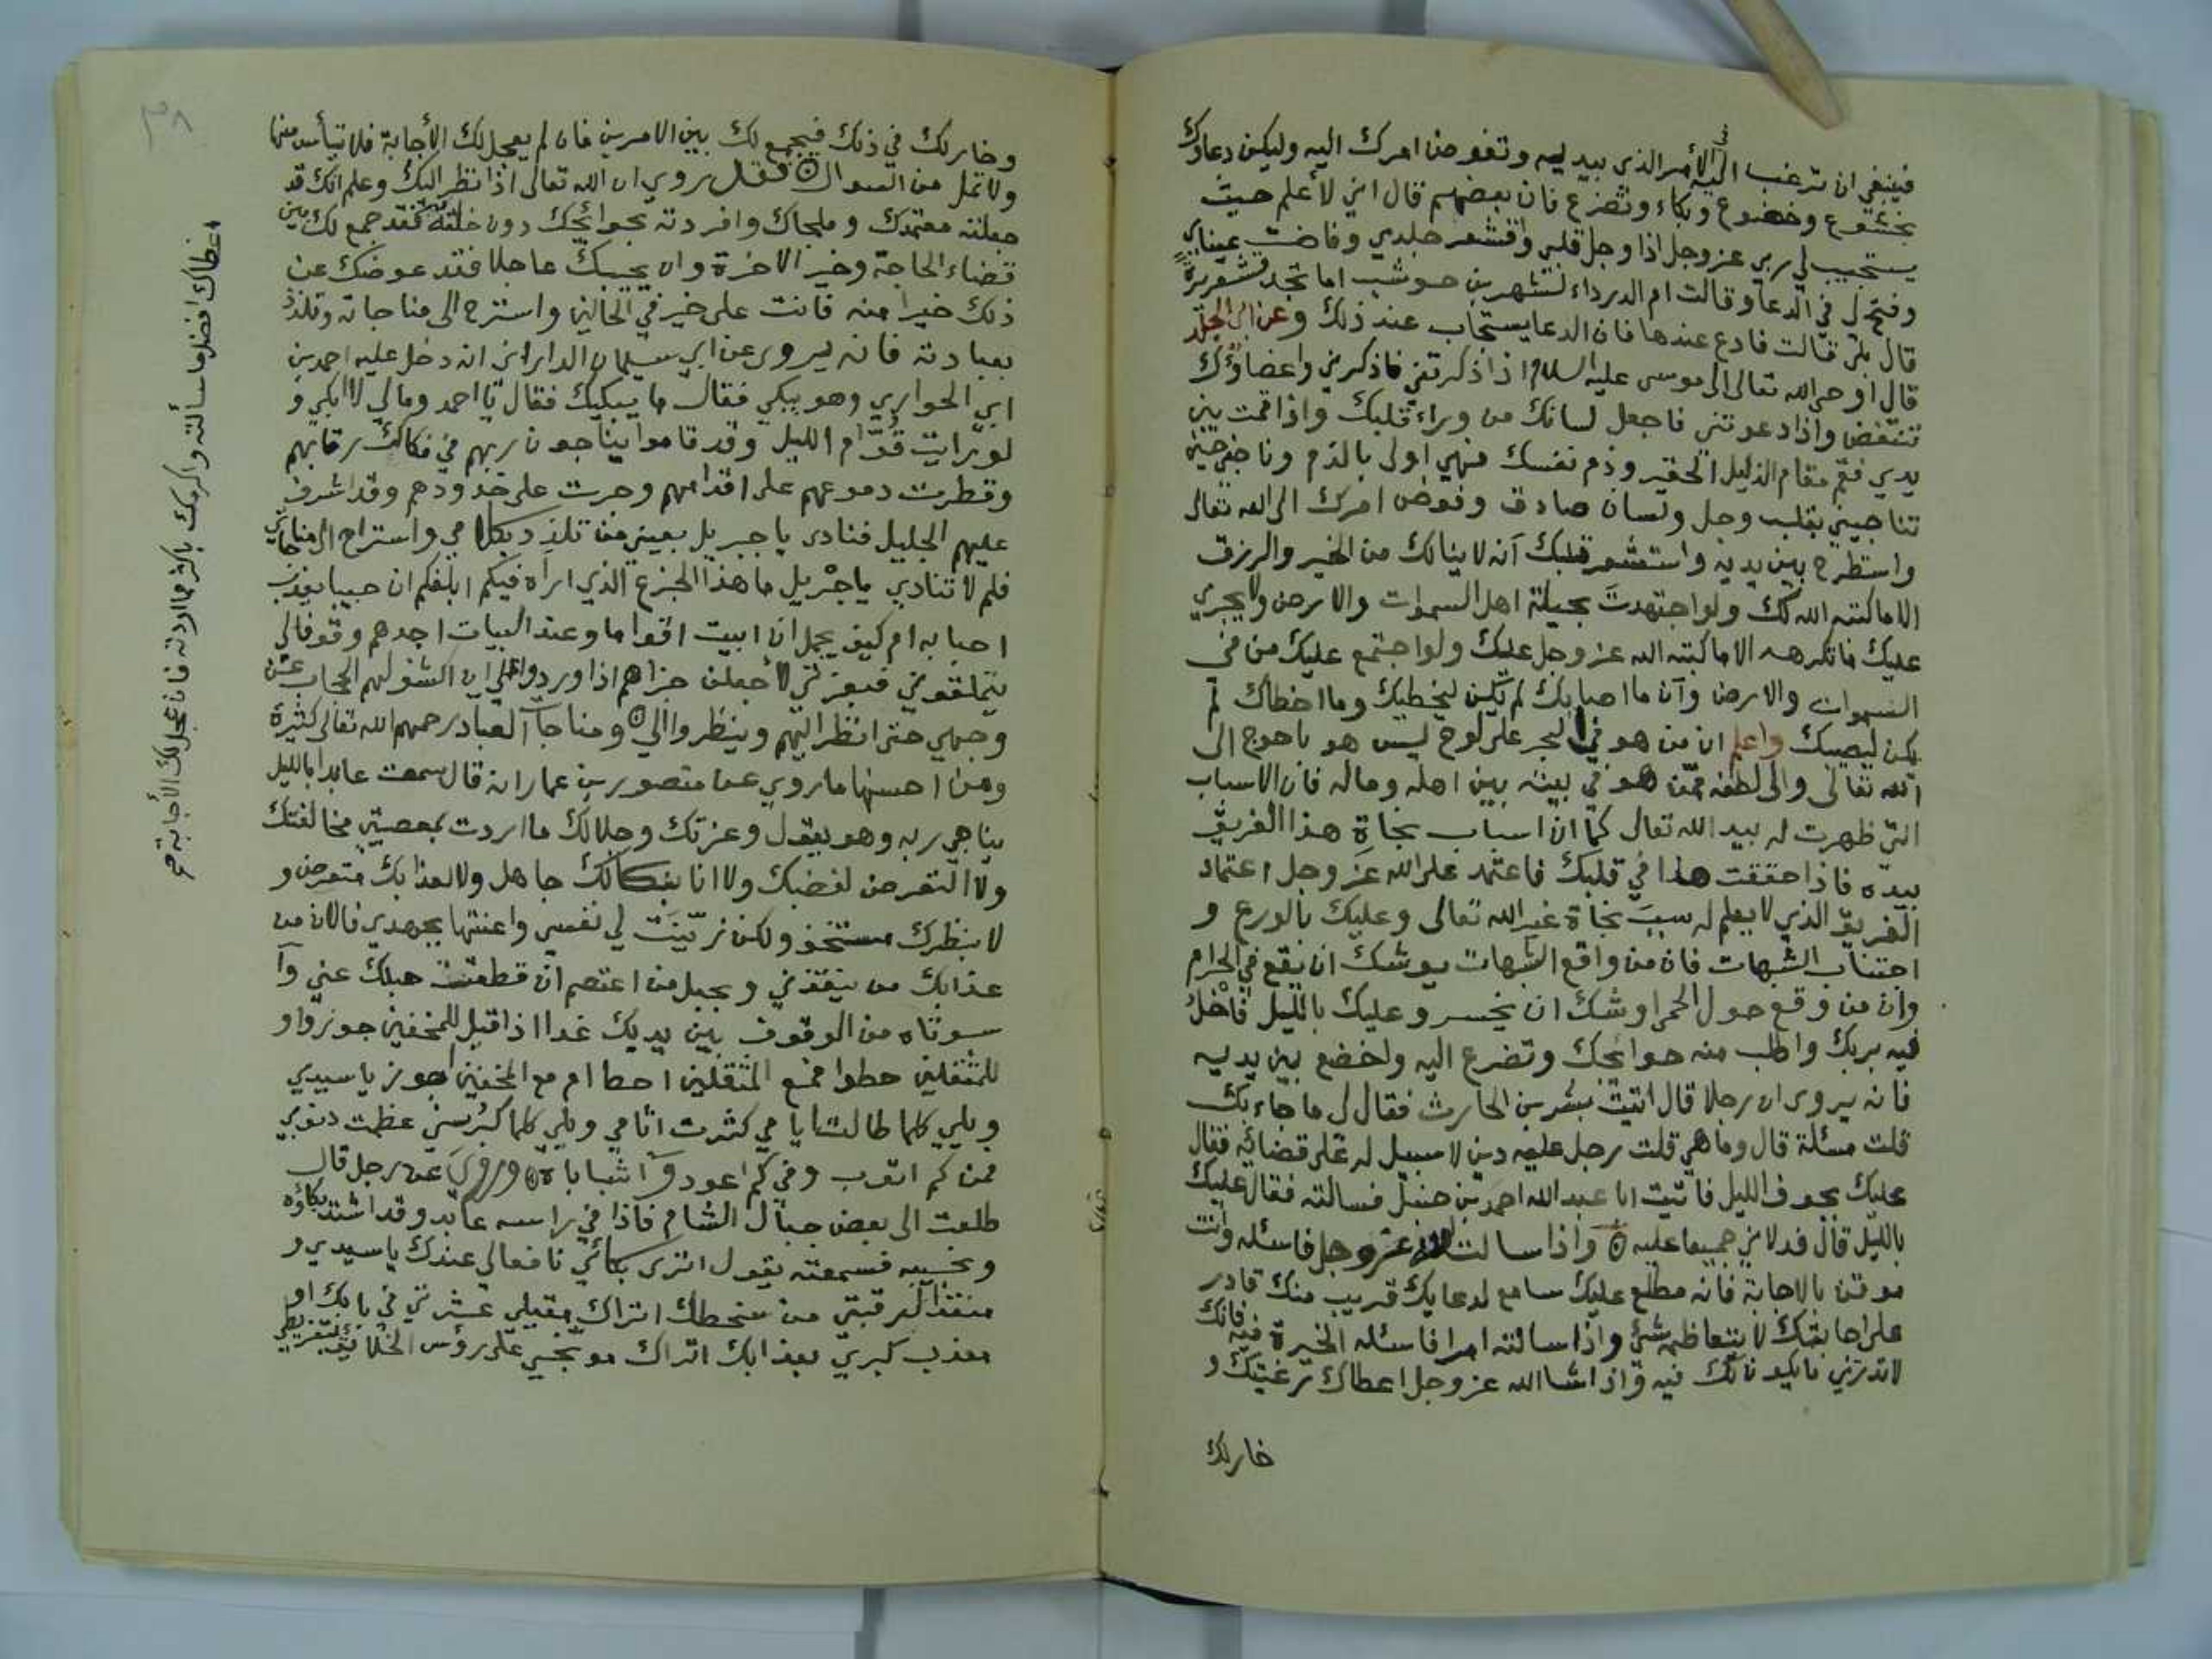 فينبغي ان ترغب اليه في الأمر الذي بيديه وتفوض امرك اليه وليكن دعاؤك
بخشوع وخضوع وبكاء وتضرع فان بعضهم قال اني لأعلم حيث
يستجيب لي ربي عز وجل اذا وجل قلبي واقشعر جلدي وفاضت عيناي
وفتح لي في الدعا وقالت ام الدرداء لشهر بن حوشب اما تجد قشعريرة
قال بلى قالت فادع عندها فان الدعا يستجاب عند ذلك وعن ابي الجلد
قال اوحى الله تعالى الى موسى عليه السلام اذا ذكرتني فاذكرني واعضاؤك
تنتفض واذا دعوتني فاجعل لسانك من وراء قلبك واذا قمت بين
يدي فقم مقام الذليل الحقير وذم نفسك فهي اولى بالذم وناجني حين
تناجيني بقلب وجل ولسان صادق وفوض امرك الى الله تعالى
واستطرح بين يديه واستشعر قلبك انه لا ينالك من الخير والرزق
الا ما كتبه الله لك ولو اجتهدت بحيلة اهل السموات والارض ولا يجري
عليك ما تكرهه الا ما كتبه الله عز وجل عليك ولو اجتمع عليك من في
السموات والارض وان ما اصابك لم يكن ليخطيك وما اخطاك لم
يكن ليصيبك واعلم ان من هو في البحر على لوح ليس هو باحوج الى
الله تعالى والى لطفه ممن هو في بيته بين اهله وماله فان الاسباب
التي ظهرت له بيد الله تعالى كما ان اسباب نجاة هذا الغريق
بيده فاذا حققت هذا في قلبك فاعتمد على الله عز وجل اعتماد
الغريق الذي لا يعلم له سبب نجاة غير الله تعالى وعليك بالورع و
اجتناب الشبهات فان من واقع الشبهات يوشك ان يقع في الحرام
وان من وقع حول الحمى اوشك ان يخسر وعليك بالليل فاخل
فيه بربك واطلب منه حوائجك وتضرع اليه واخضع بين يديه
فانه يروى ان رجلا قال اتيت بشر بن الحارث فقال لي ما جاء بك
قلت مسئلة قال وما هي قلت رجل عليه دين لا سبيل له على قضائه فقال
عليك بجوف الليل فاتيت ابا عبد الله احمد بن حنبل فسالته فقال عليك
بالليل قال فدلاني جميعا عليه ۞ واذا سالت الله عز وجل فاسئله وانت
موقن بالاجابة فانه مطلع عليك سامع لدعايك قريب منك قادر
على اجابتك لا يتعاظمه شئ واذا سالته امرا فاسئله الخيرة فيه فانك
لا تدري ما يكون لك فيه واذا شاالله عز وجل اعطاك رغبتك و
خارلك
٣٨
وخار لك في ذلك فيجمع لك بين الامرين فان لم يعجل لك الأجابة فلا تيأس منها
ولا تمل من السوال ۞ فقل يروي ان الله تعالى اذا نظر اليك وعلم انك قد
جعلته معتمدك وملجاك وافردته بحوائجك دون خلقه فقد جمع لك بين
قضاء الحاجة وخير الاخرة وان يجيبك عاجلا فقد عوضك عن
ذلك خيرا منه فانت على خير في الحالين واسترح الى مناجاته وتلذذ
بعبادته فانه يروى عن ابي سليمان الداراني انه دخل عليه احمد بن
ابي الحواري وهو يبكي فقال ما يبكيك فقال يا احمد ومالي لا ابكي و
لو رايت قوّام الليل وقد قاموا يناجون ربهم في فكاك رقابهم
وقطرت دموعهم على اقدامهم وجرت على خدودهم وقد اشرف
عليهم الجليل فنادى يا جبريل بعيني من تلذذ بكلامي واستراح الى مناجاتي
فلم لا تنادي يا جبريل ما هذا الجزع الذي اراه فيكم ابلغكم ان حبيبا يعذب
احبابه ام كيف يجمل ان ابيت اقواما وعند البيات اجدهم وقوفا لي
يتملقوني فبعزتي لأجعلن جزاهم اذا وردوا علي ان اكشف لهم الحجاب عن
وجهي حتى انظر اليهم وينظروا الي ۞ ومناجاة العباد رحمهم الله تعالى كثيرة
ومن احسنها ما روي عن منصور بن عمار انه قال سمعت عابدا بالليل
يناجي ربه وهو يقول وعزتك وجلالك ما اردت بمعصيتي مخالفتك
ولا التعرض لغضبك ولا انا بنكالك جاهل ولا لعذابك متعرض و
لا بنظرك مستخف ولكن زيّنت لي نفسي واعنتها بجهدي فالان من
عذابك من ينقذني وبحبل من اعتصم ان قطعت حبلك عني وآ
سوأتاه من الوقوف بين يديك غدا اذا قيل للمخفين جوزوا و
للمثقلين حطوا فمع المثقلين احط ام مع المخفين اجوز يا سيدي
ويلي كلما طالت ايامي كثرت اثامي ويلي كلما كبر سني عظمت ذنوبي
فمن كم اتوب وفي كم اعود وآ شباباه ۞ وروي عن رجل قال
طلعت الى بعض جبال الشام فاذا في راسه عابد وقد اشتد بكاؤه
ونحيبه فسمعته يقول اترى بكائي نافعا لي عندك يا سيدي و
منقذا لرقبتي من سخطك اتراك مقيلي عثرتي في بابك او
معذب كبري بعذابك اتراك موبخي على رؤس الخلائق بتفريطي
اعطاك افضل ما سألته واكرمك باكثر مما اردته فان عجل لك الأجابة صح